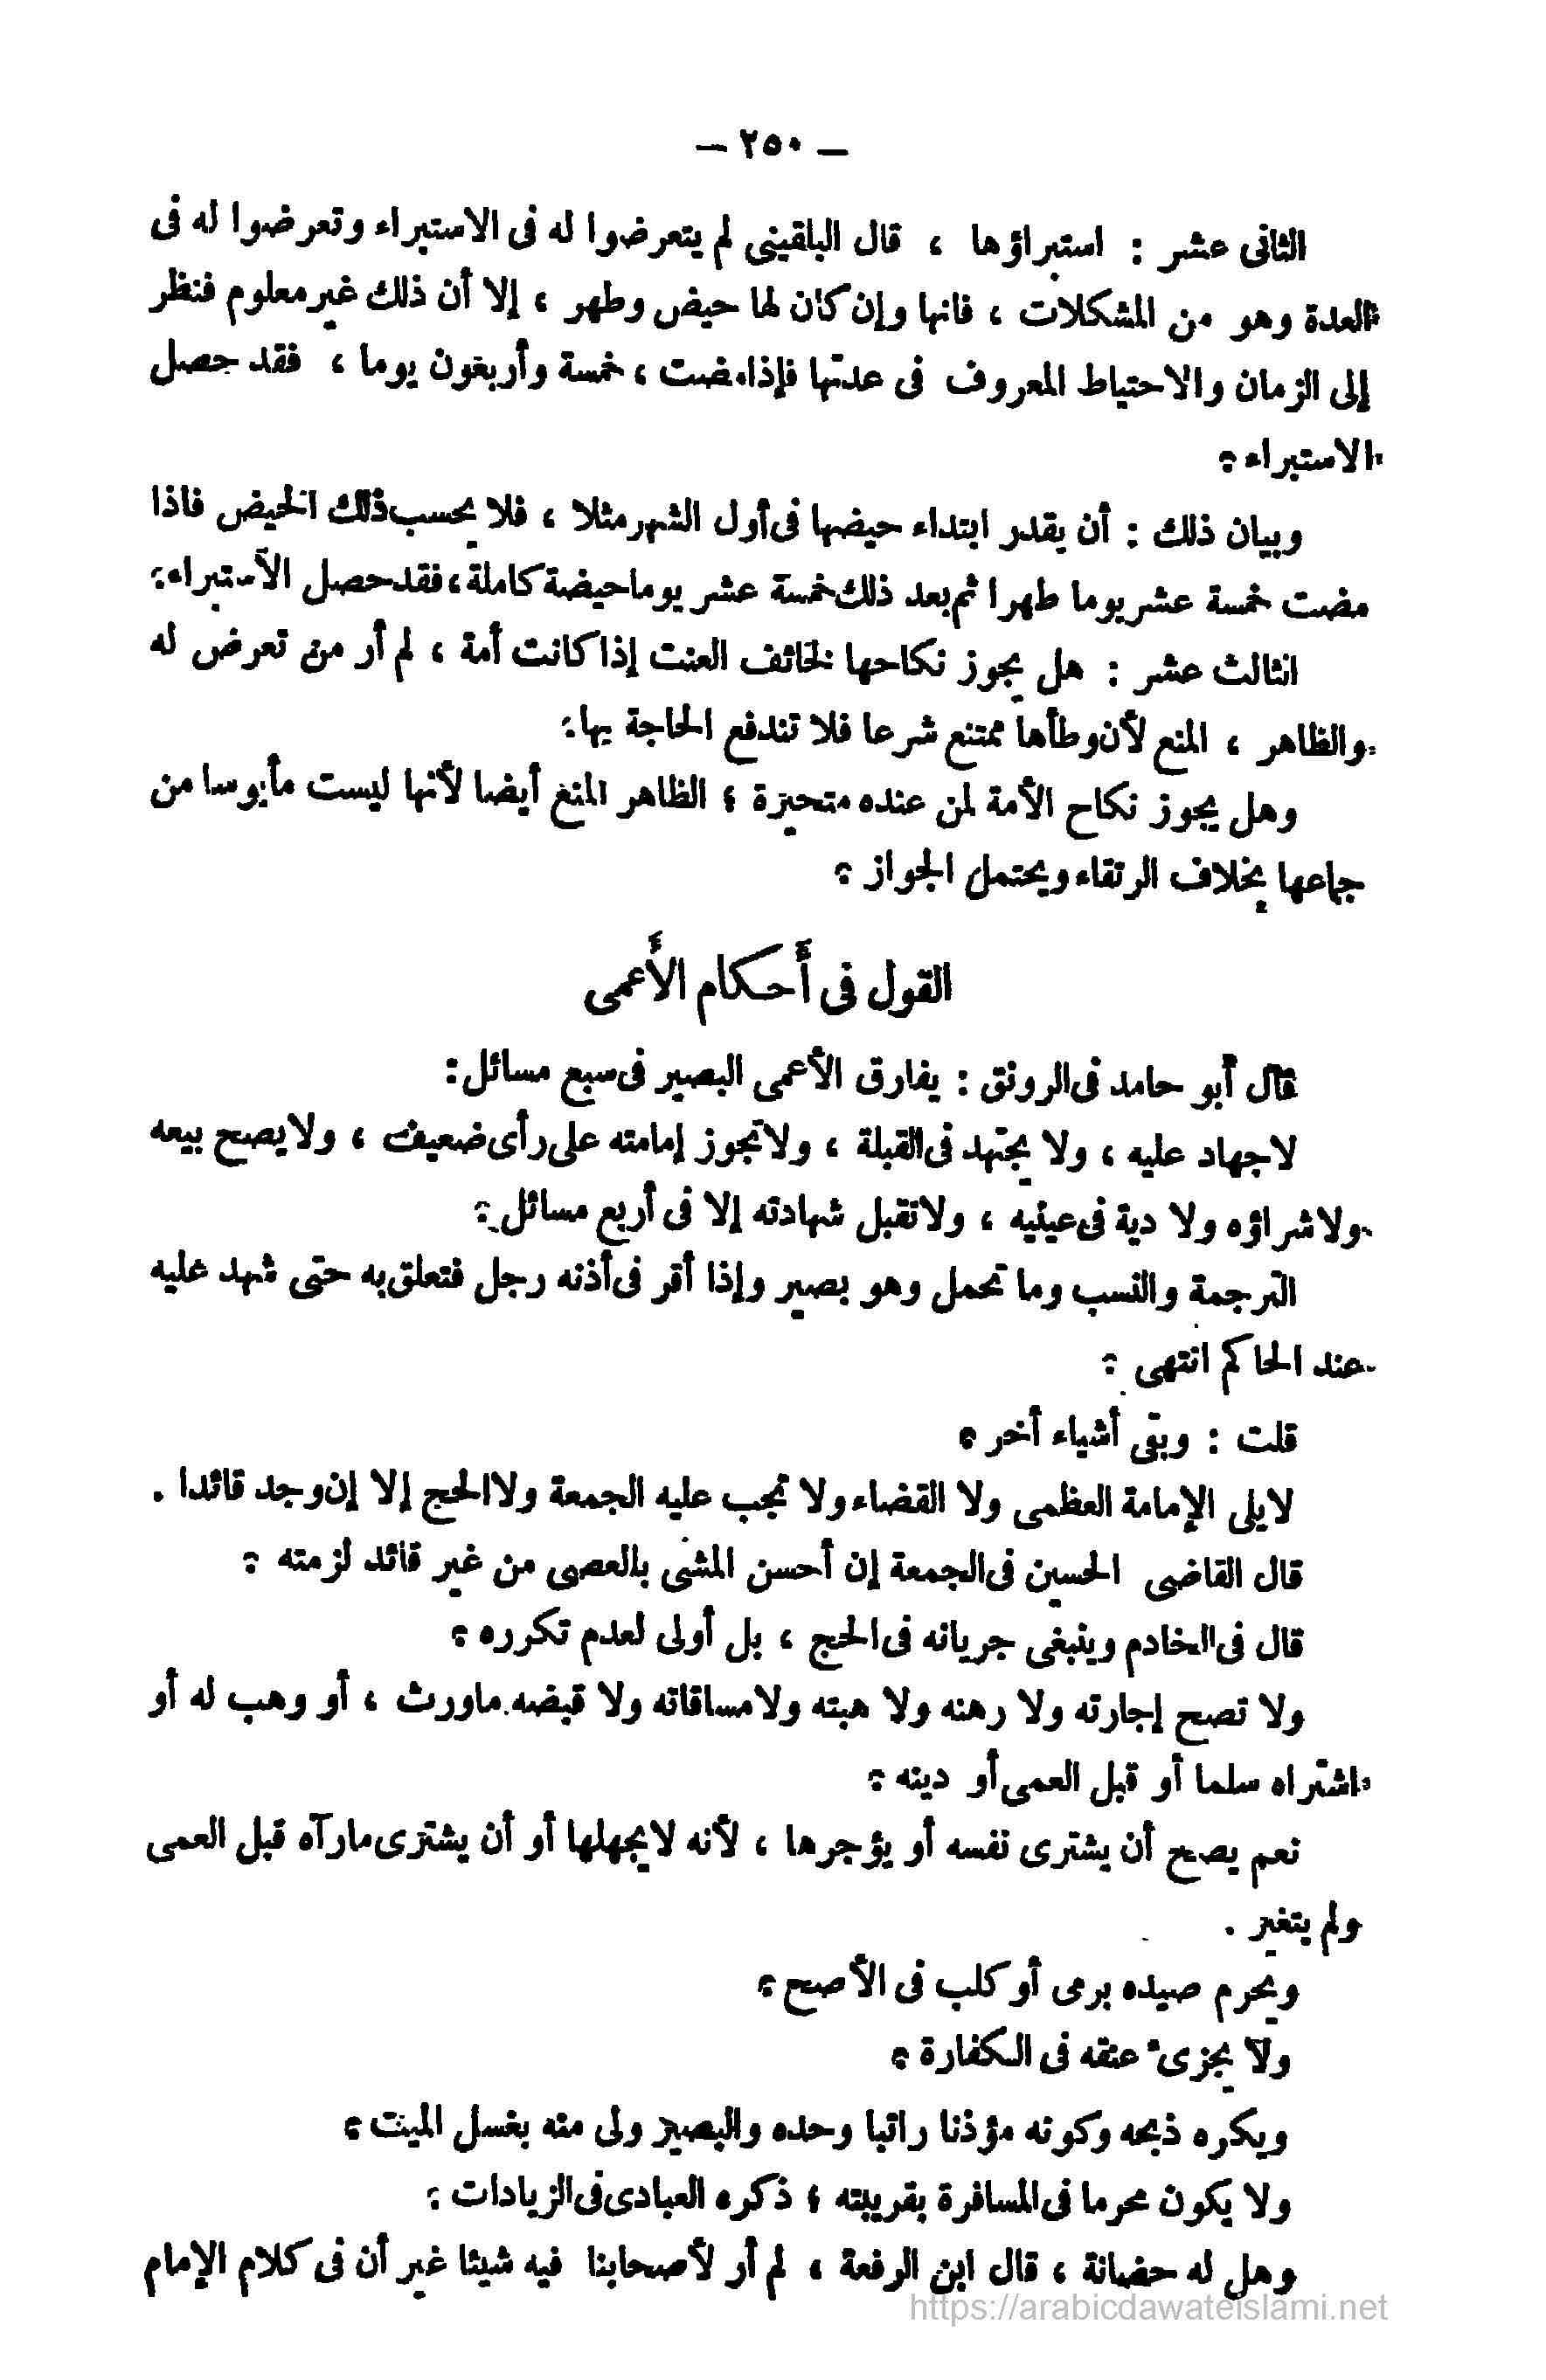 — ٢٥٠ —
الثانى عشر : استبراؤها ، قال البلقينى لم يتعرضوا له فى الاستبراء وتعرضوا له فى
العدة وهو من المشكلات ، فانها وإن كان لها حيض وطهر ، إلا أن ذلك غير معلوم فنظر
إلى الزمان والاحتياط المعروف فى عدتها فإذا مضت ، خمسة وأربعون يوما ، فقد حصل
الاستبراء ؛
وبيان ذلك : أن يقدر ابتداء حيضها فى أول الشهر مثلا ، فلا يحسب ذلك الحيض فاذا
مضت خمسة عشر يوما طهرا ثم بعد ذلك خمسة عشر يوما حيضة كاملة ، فقد حصل الاستبراء ؛
الثالث عشر : هل يجوز نكاحها لخائف العنت إذا كانت أمة ، لم أر من تعرض له
والظاهر ، المنع لأن وطأها ممتنع شرعا فلا تندفع الحاجة بها ؛
وهل يجوز نكاح الأمة لمن عنده متحيزة ؛ الظاهر المنع أيضا لأنها ليست مأيوسا من
جماعها بخلاف الرتقاء ويحتمل الجواز ؛
القول فى أَحكام الأَعمى
قال أبو حامد فى الرونق : يفارق الأعمى البصير فى سبع مسائل :
لا جهاد عليه ، ولا يجتهد فى القبلة ، ولا تجوز إمامته على رأى ضعيف ، ولا يصح بيعه
ولا شراؤه ولا دية فى عينيه ، ولا تقبل شهادته إلا فى أربع مسائل ؛
الترجمة والنسب وما تحمل وهو بصير وإذا أقر فى أذنه رجل فتعلق به حتى شهد عليه
عند الحاكم انتهى ؛
قلت : وبقى أشياء أخر ؛
لا يلى الإمامة العظمى ولا القضاء ولا تجب عليه الجمعة ولا الحج إلا إن وجد قائدا .
قال القاضى الحسين فى الجمعة إن أحسن المشى بالعصى من غير قائد لزمته ؛
قال فى الخادم وينبغى جريانه فى الحج ، بل أولى لعدم تكرره ؛
ولا تصح إجارته ولا رهنه ولا هبته ولا مساقاته ولا قبضه ما ورث ، أو وهب له أو
اشتراه سلما أو قبل العمى أو دينه ؛
نعم يصح أن يشترى نفسه أو يؤجرها ، لأنه لا يجهلها أو أن يشترى ما رآه قبل العمى
ولم يتغير .
ويحرم صيده برمى أو كلب فى الأصح ؛
ولا يجزىء عتقه فى الكفارة ؛
ويكره ذبحه وكونه مؤذنا راتبا وحده والبصير ولى منه بغسل الميت ؛
ولا يكون محرما فى المسافرة بقريبته ؛ ذكره العبادى فى الزيادات ؛
وهل له حضانة ، قال ابن الرفعة ، لم أر لأصحابنا فيه شيئا غير أن فى كلام الإمام
https://arabicdawateislami.net